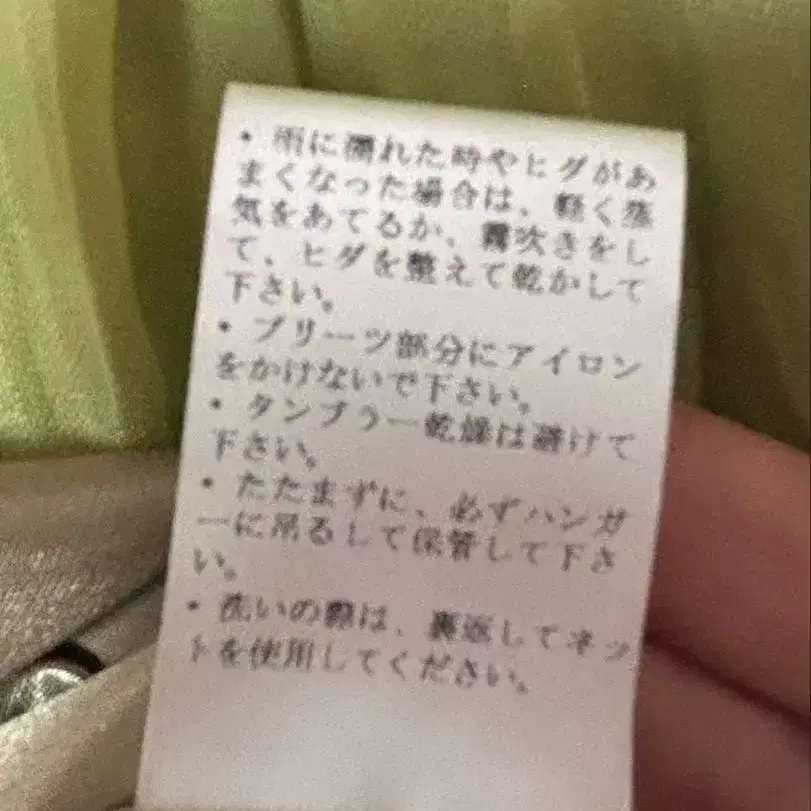 ・雨に濡れた時やヒダがあ
まくなった場合は、軽く蒸
気をあてるか、霧吹きをし
て、ヒダを整えて乾かして
下さい。
・プリーツ部分にアイロン
をかけないで下さい。
・タンブラー乾燥は避けて
下さい。
・たたまずに、必ずハンガ
ーに吊るして保管して下さ
い。
・洗いの際は、裏返してネッ
トを使用してください。